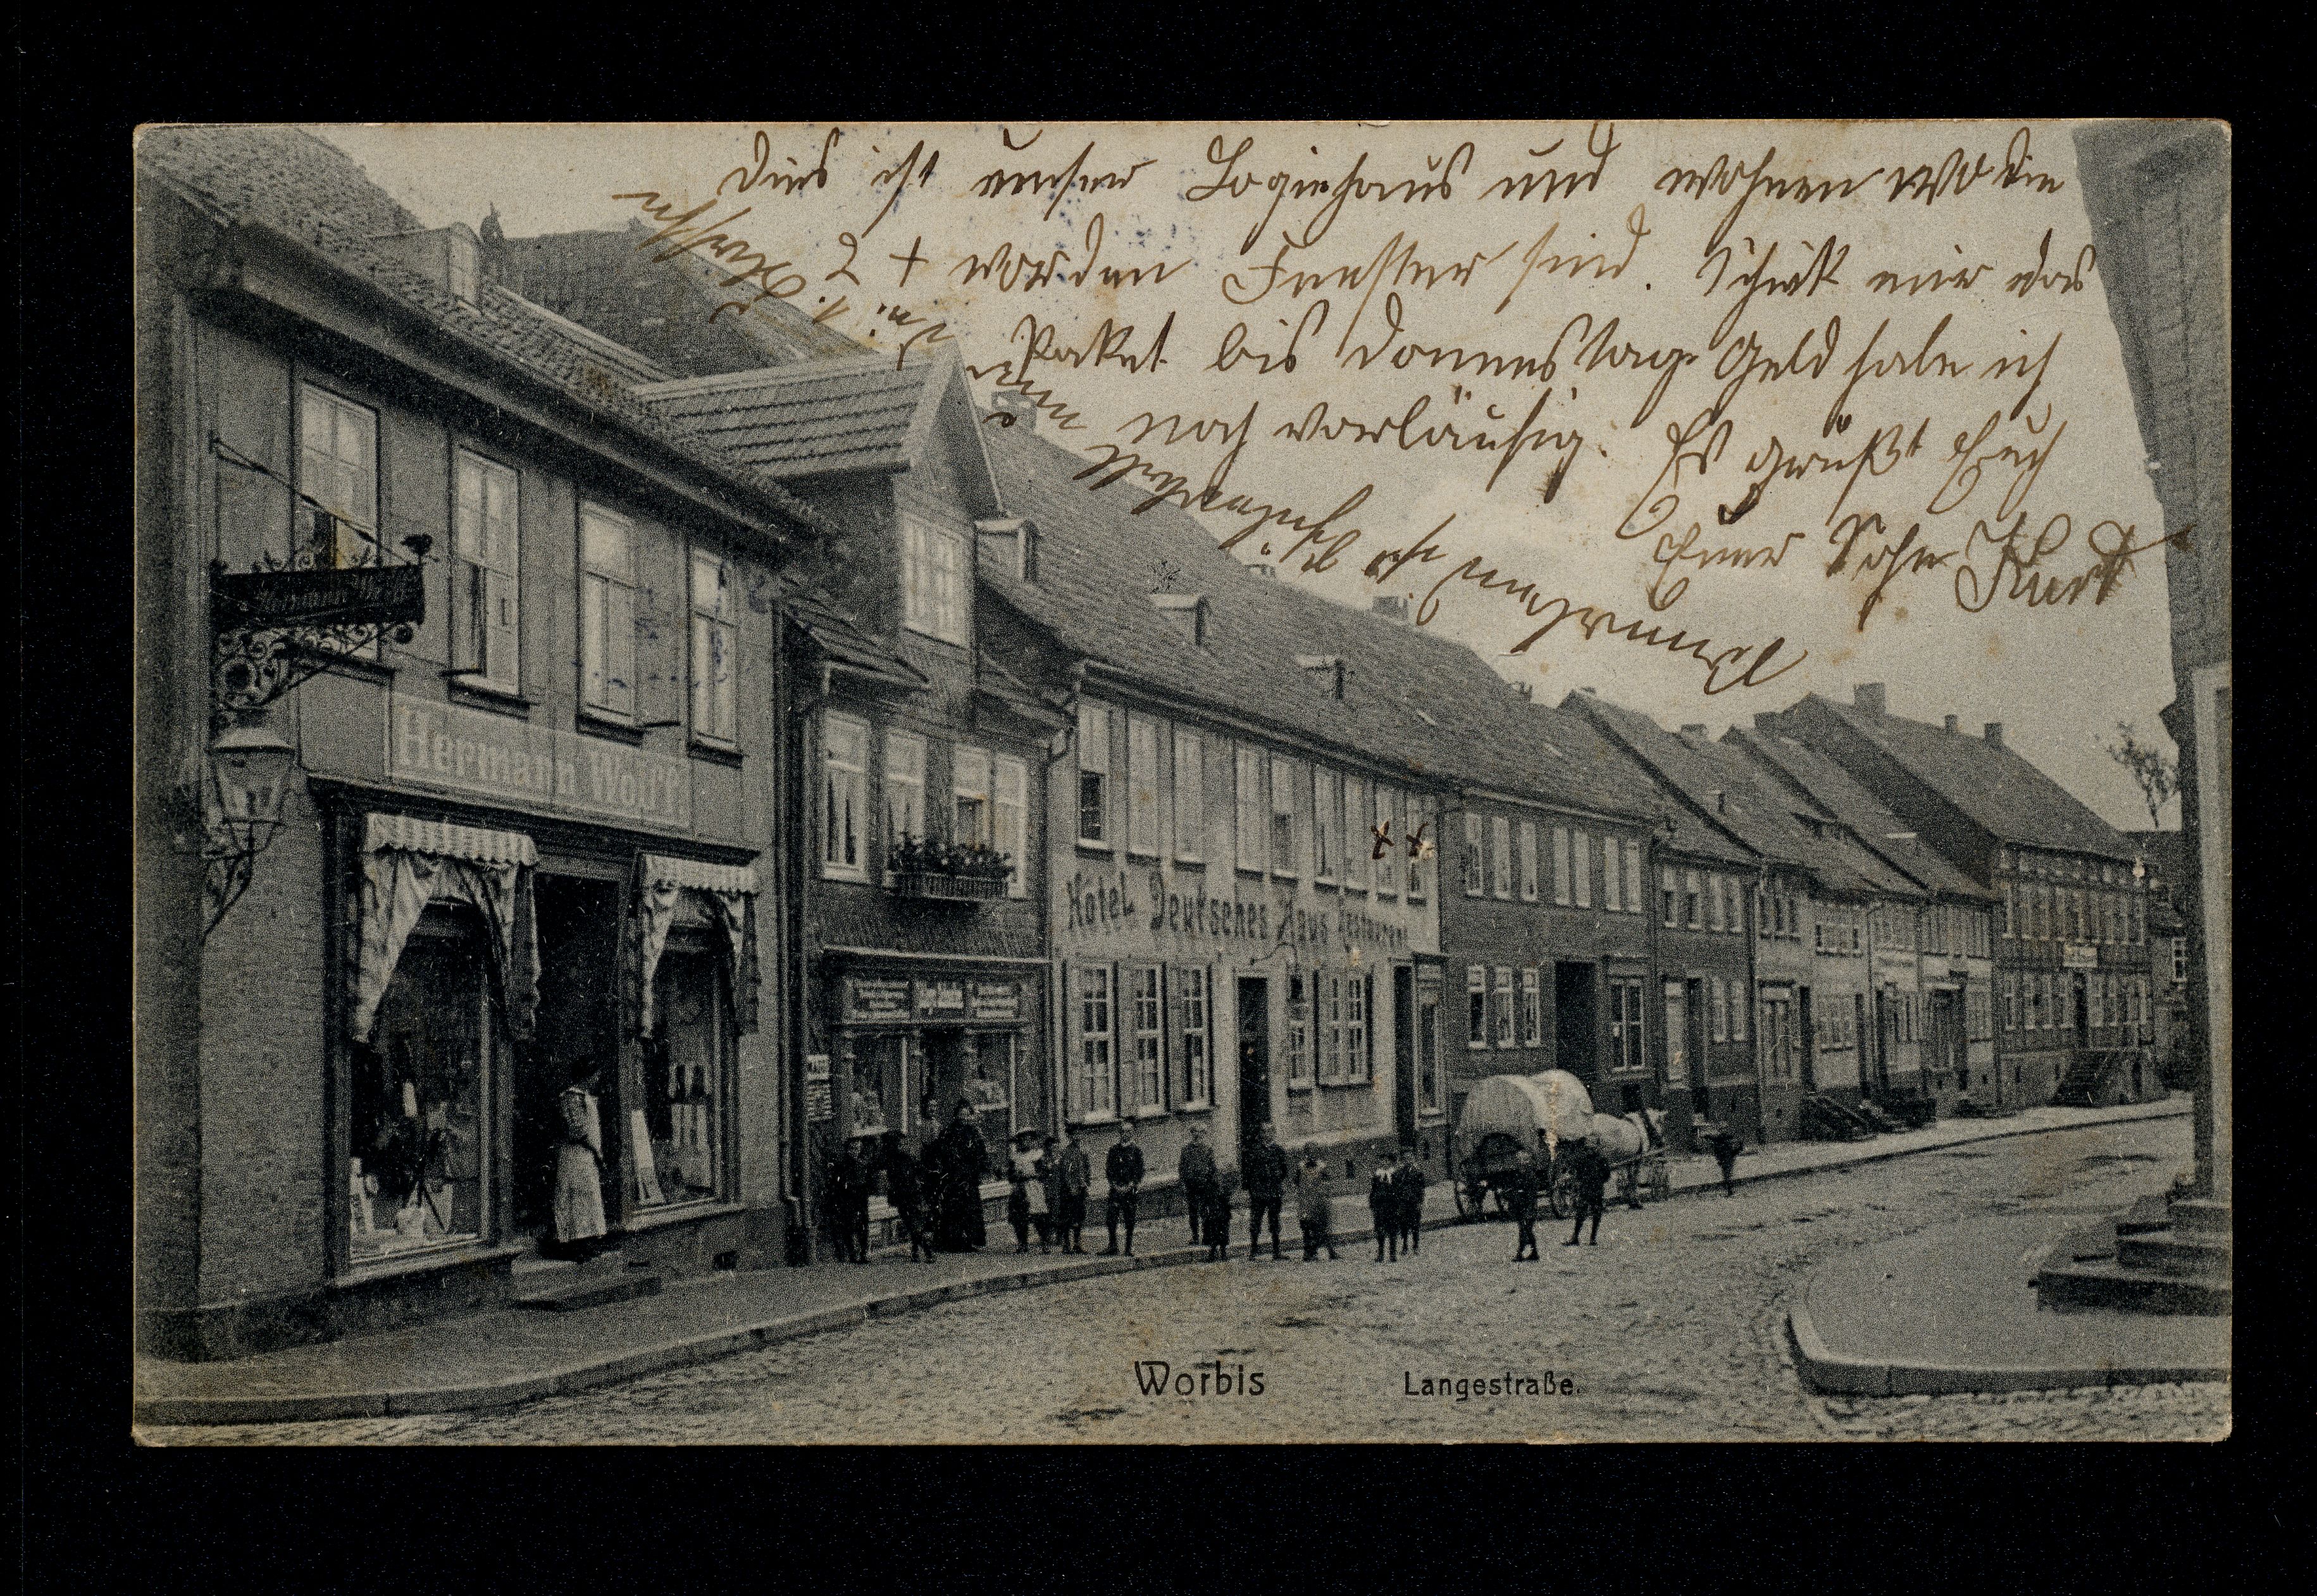 Dies ist unser Logiehaus und wohnen wo die
2 + vor den Fenster sind. Schickt mir das
Paket bis Donnerstag. Geld habe ich
noch vorläufig. Es grüßt Euch
Euer Sohn Kurt
Hermann Wolff
Hermann Wolff
x x
Hotel Deutsches Haus Restaurant
Worbis Langestraße.